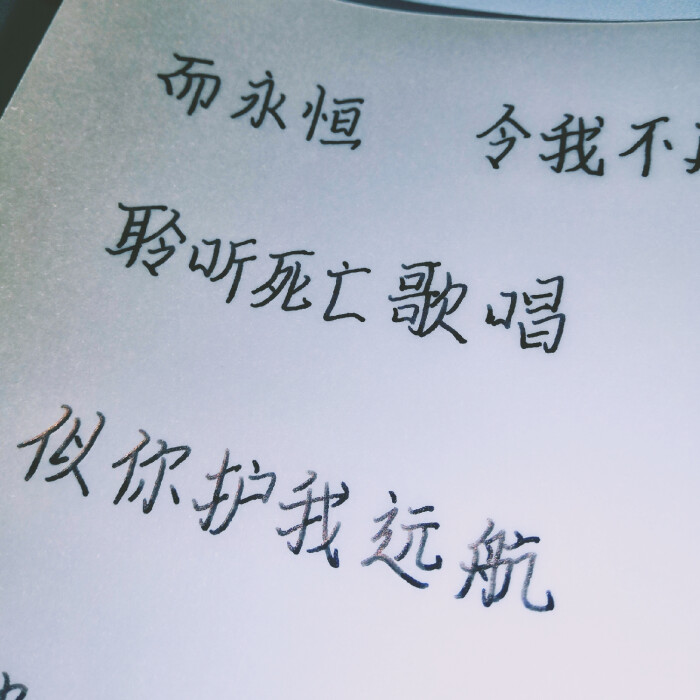 而永恒 令我不
聆听死亡歌唱
似你护我远航